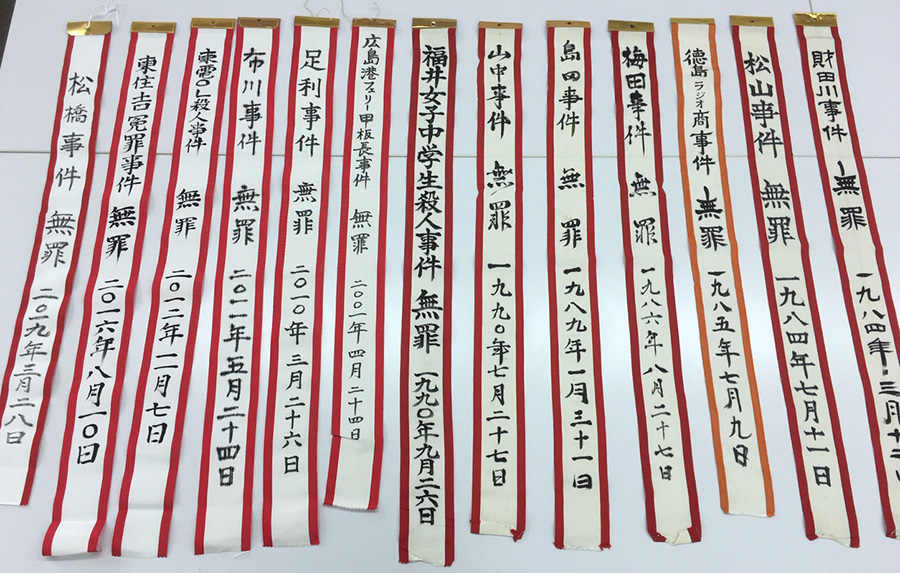 財田川事件 無罪 一九八四年三月十二日
松山事件 無罪 一九八四年七月十一日
徳島ラジオ商事件 無罪 一九八五年七月九日
梅田事件 無罪 一九八六年八月二十七日
島田事件 無罪 一九八九年一月三十一日
山中事件 無罪 一九九〇年七月二十七日
福井女子中学生殺人事件 無罪 一九九〇年九月二六日
広島港フェリー甲板長事件 無罪 二〇〇一年四月二十四日
足利事件 無罪 二〇一〇年三月二十六日
布川事件 無罪 二〇一一年五月二十四日
東電OL殺人事件 無罪 二〇一二年一一月七日
東住吉冤罪事件 無罪 二〇一六年八月一〇日
松橋事件 無罪 二〇一九年三月二八日